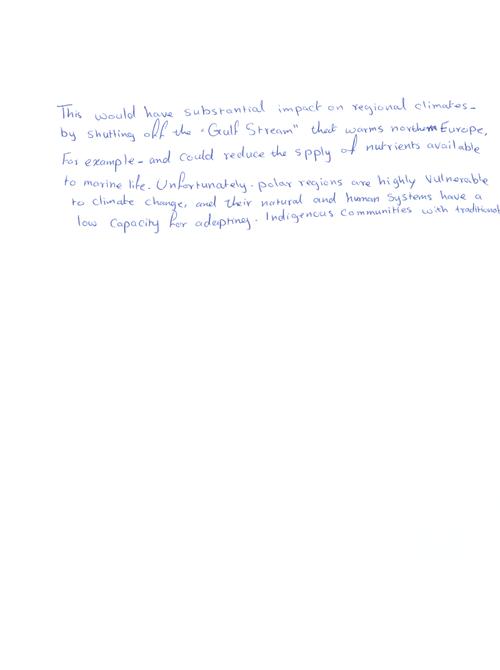 This would have substantial impact on regional climates-
by shutting off the "Gulf Stream" that warms northern Europe,
For example- and could reduce the spply of nutrients available
to marine life. Unfortunately. polar regions are highly vulnerable
to climate change, and their natural and human Systems have a
low Capacity for adapting. Indigenous Communities with traditional